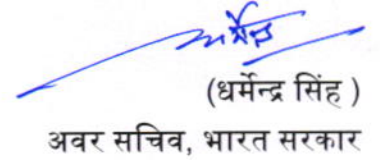 (धर्मेन्द्र सिंह )
अवर सचिव, भारत सरकार